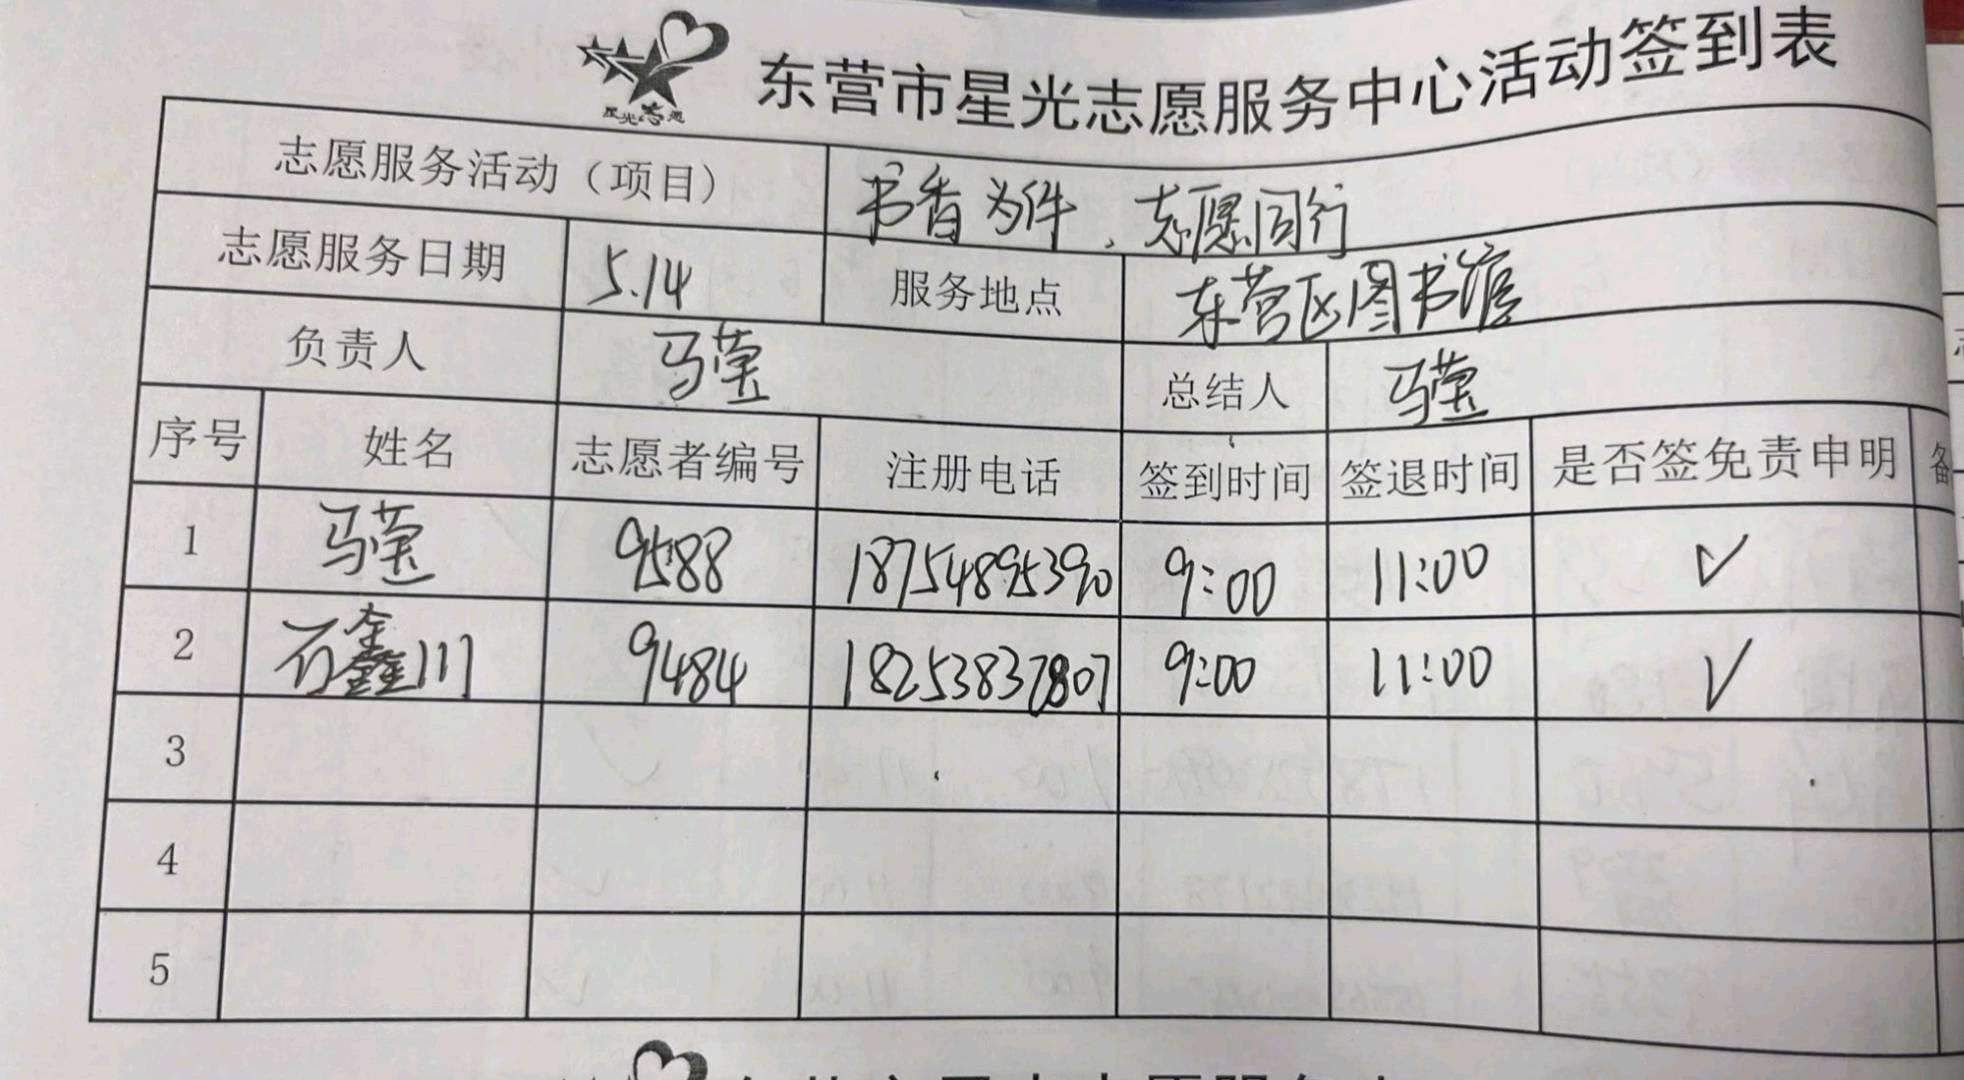 星光志愿
东营市星光志愿服务中心活动签到表
志愿服务活动（项目） 书香为伴、志愿同行
志愿服务日期 5.14 服务地点 东营区图书馆
负责人 马莹 总结人 马莹
序号 姓名 志愿者编号 注册电话 签到时间 签退时间 是否签免责申明 备
1 马莹 9588 18754895390 9:00 11:00 ✓
2 石鑫川 9484 18253837807 9:00 11:00 ✓
3
4
5